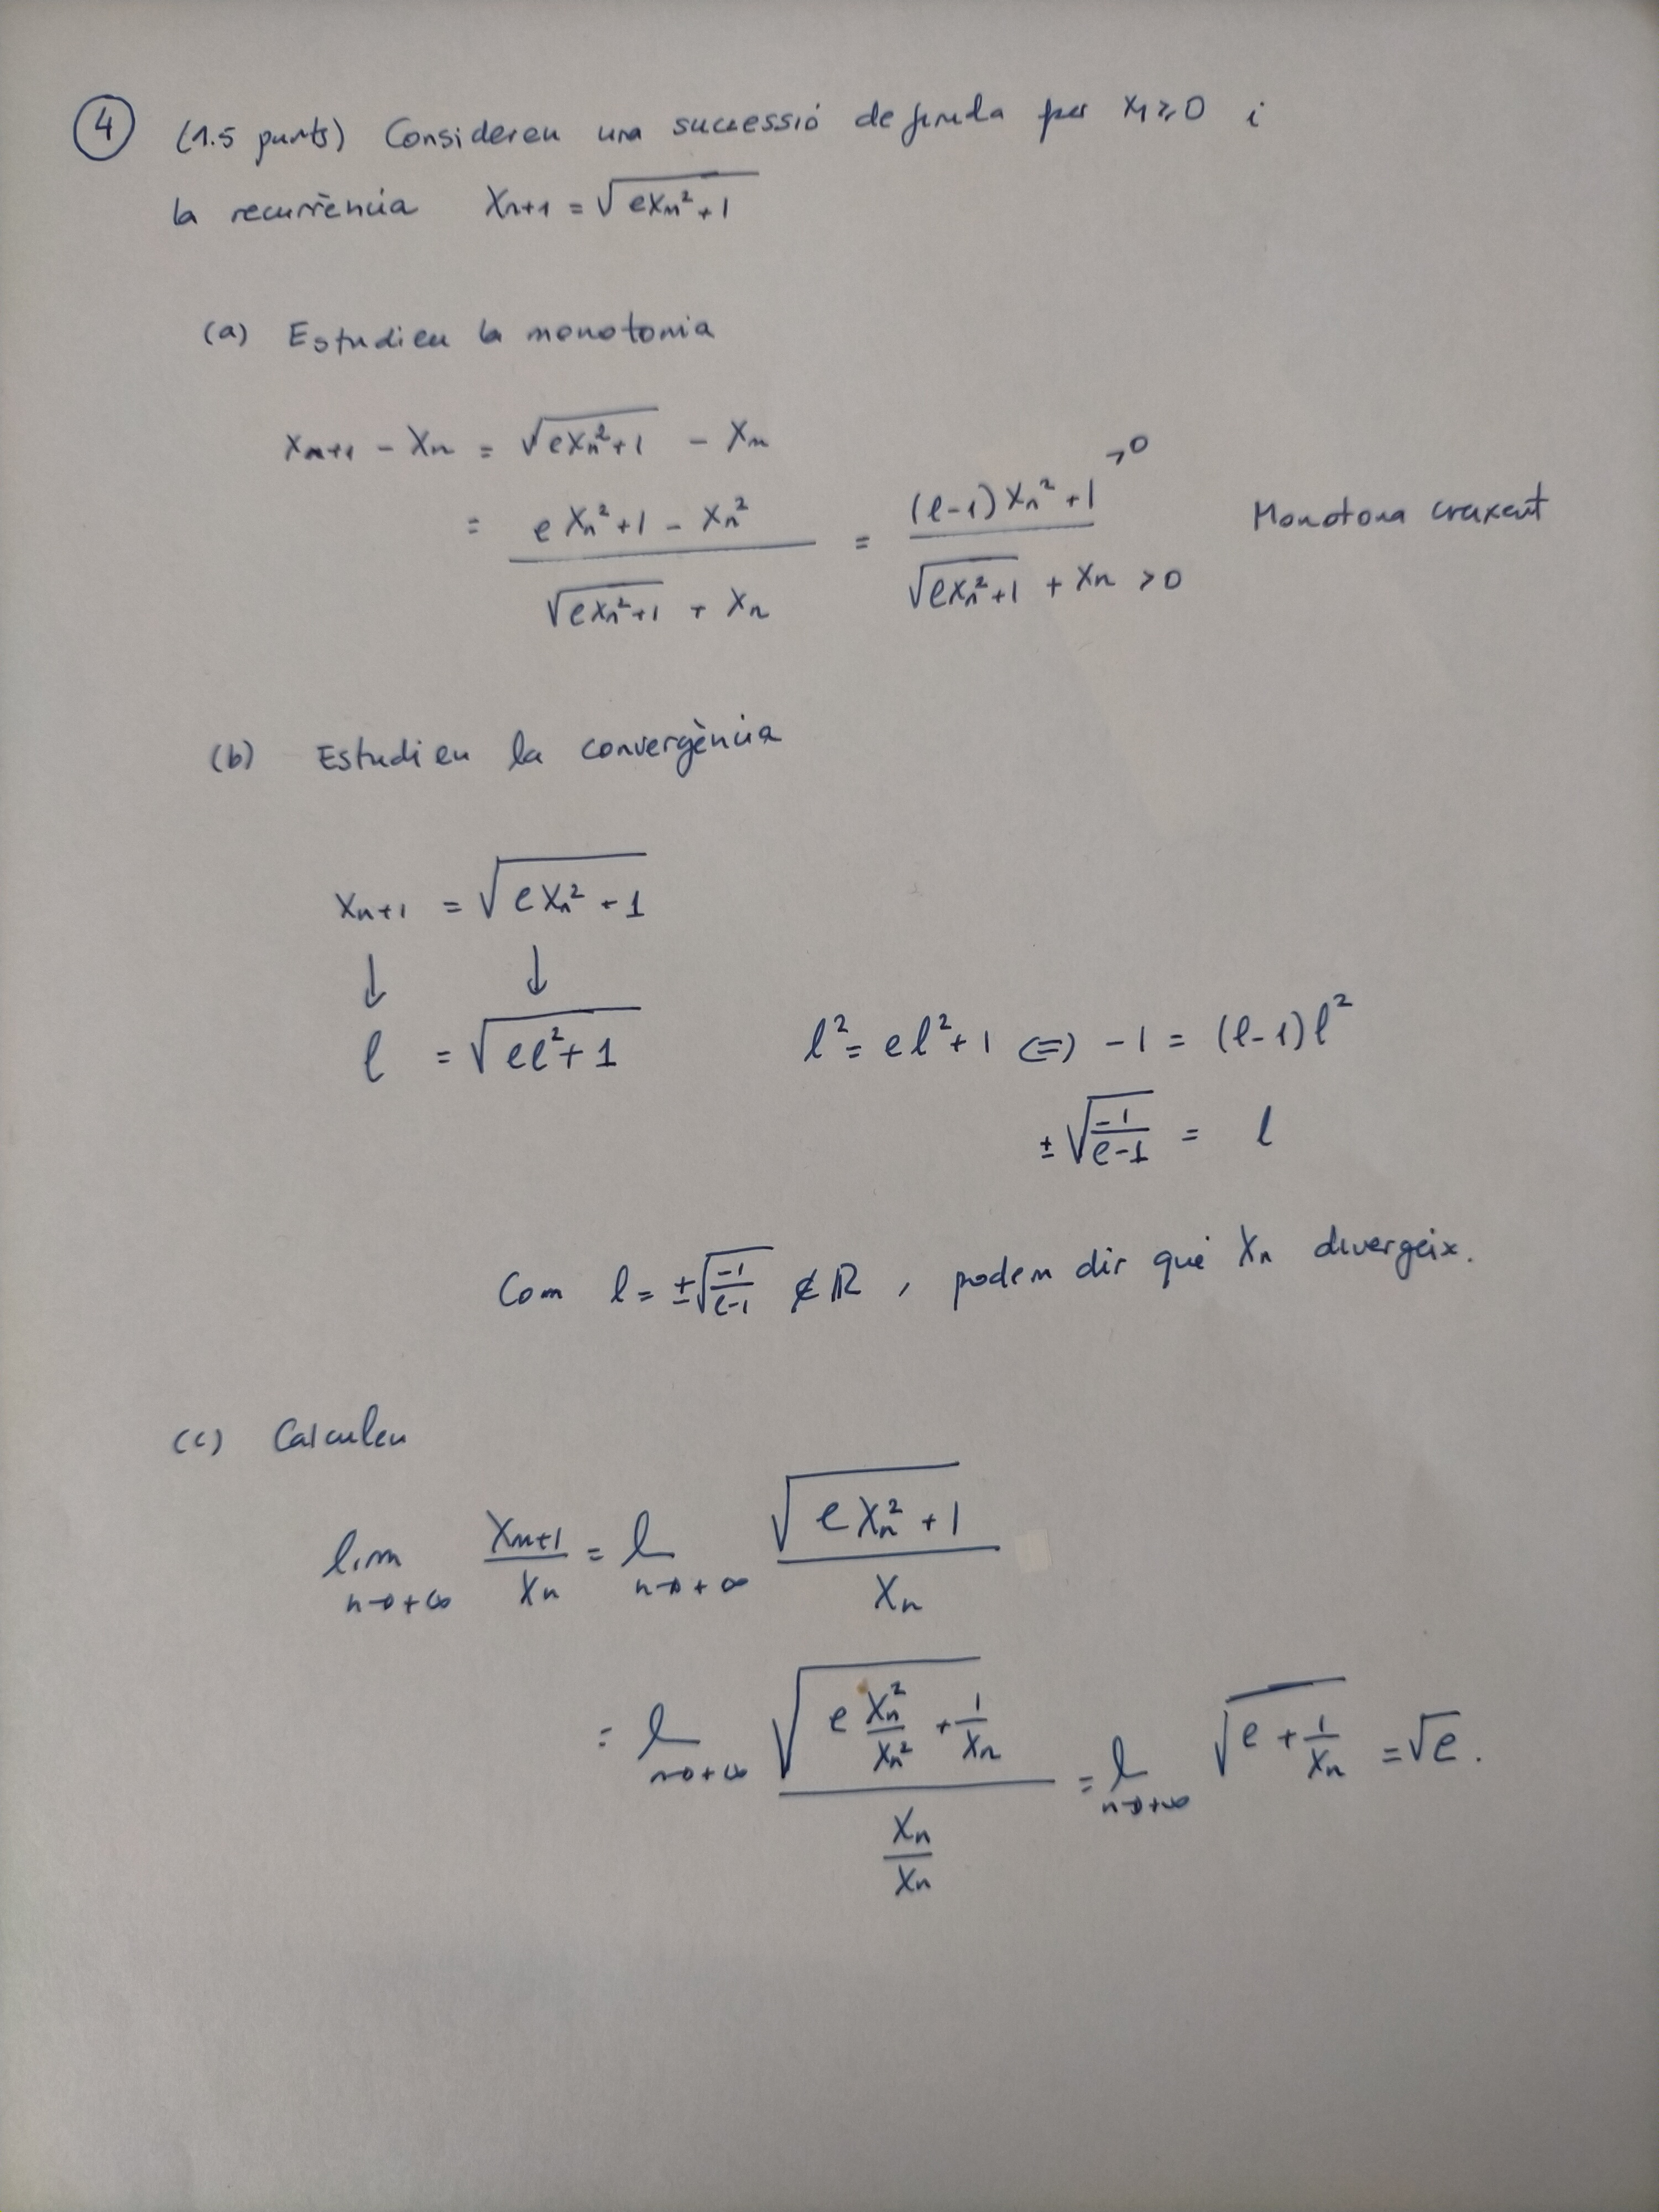 ④ (1.5 punts) Considereu una successió definida per x₁ ≥ 0 i
la recurrència xₙ₊₁ = √(exₙ² + 1)
(a) Estudieu la monotonia
xₙ₊₁ - xₙ = √(exₙ² + 1) - xₙ
= (exₙ² + 1 - xₙ²) / (√(exₙ² + 1) + xₙ) = ((e-1)xₙ² + 1 >0) / (√(exₙ² + 1) + xₙ >0) Monotona creixent
(b) Estudieu la convergència
xₙ₊₁ = √(exₙ² + 1)
↓ ↓
l = √(el² + 1) l² = el² + 1 (=) -1 = (e-1)l²
±√(-1/(e-1)) = l
Com l = ±√(-1/(e-1)) ∉ ℝ, podem dir que xₙ divergeix.
(c) Calculeu
lim n→+∞ xₙ₊₁/xₙ = l n→+∞ √(exₙ² + 1) / xₙ
= l n→+∞ √(e xₙ²/xₙ² + 1/xₙ) / (xₙ/xₙ) = l n→+∞ √(e + 1/xₙ) = √e.